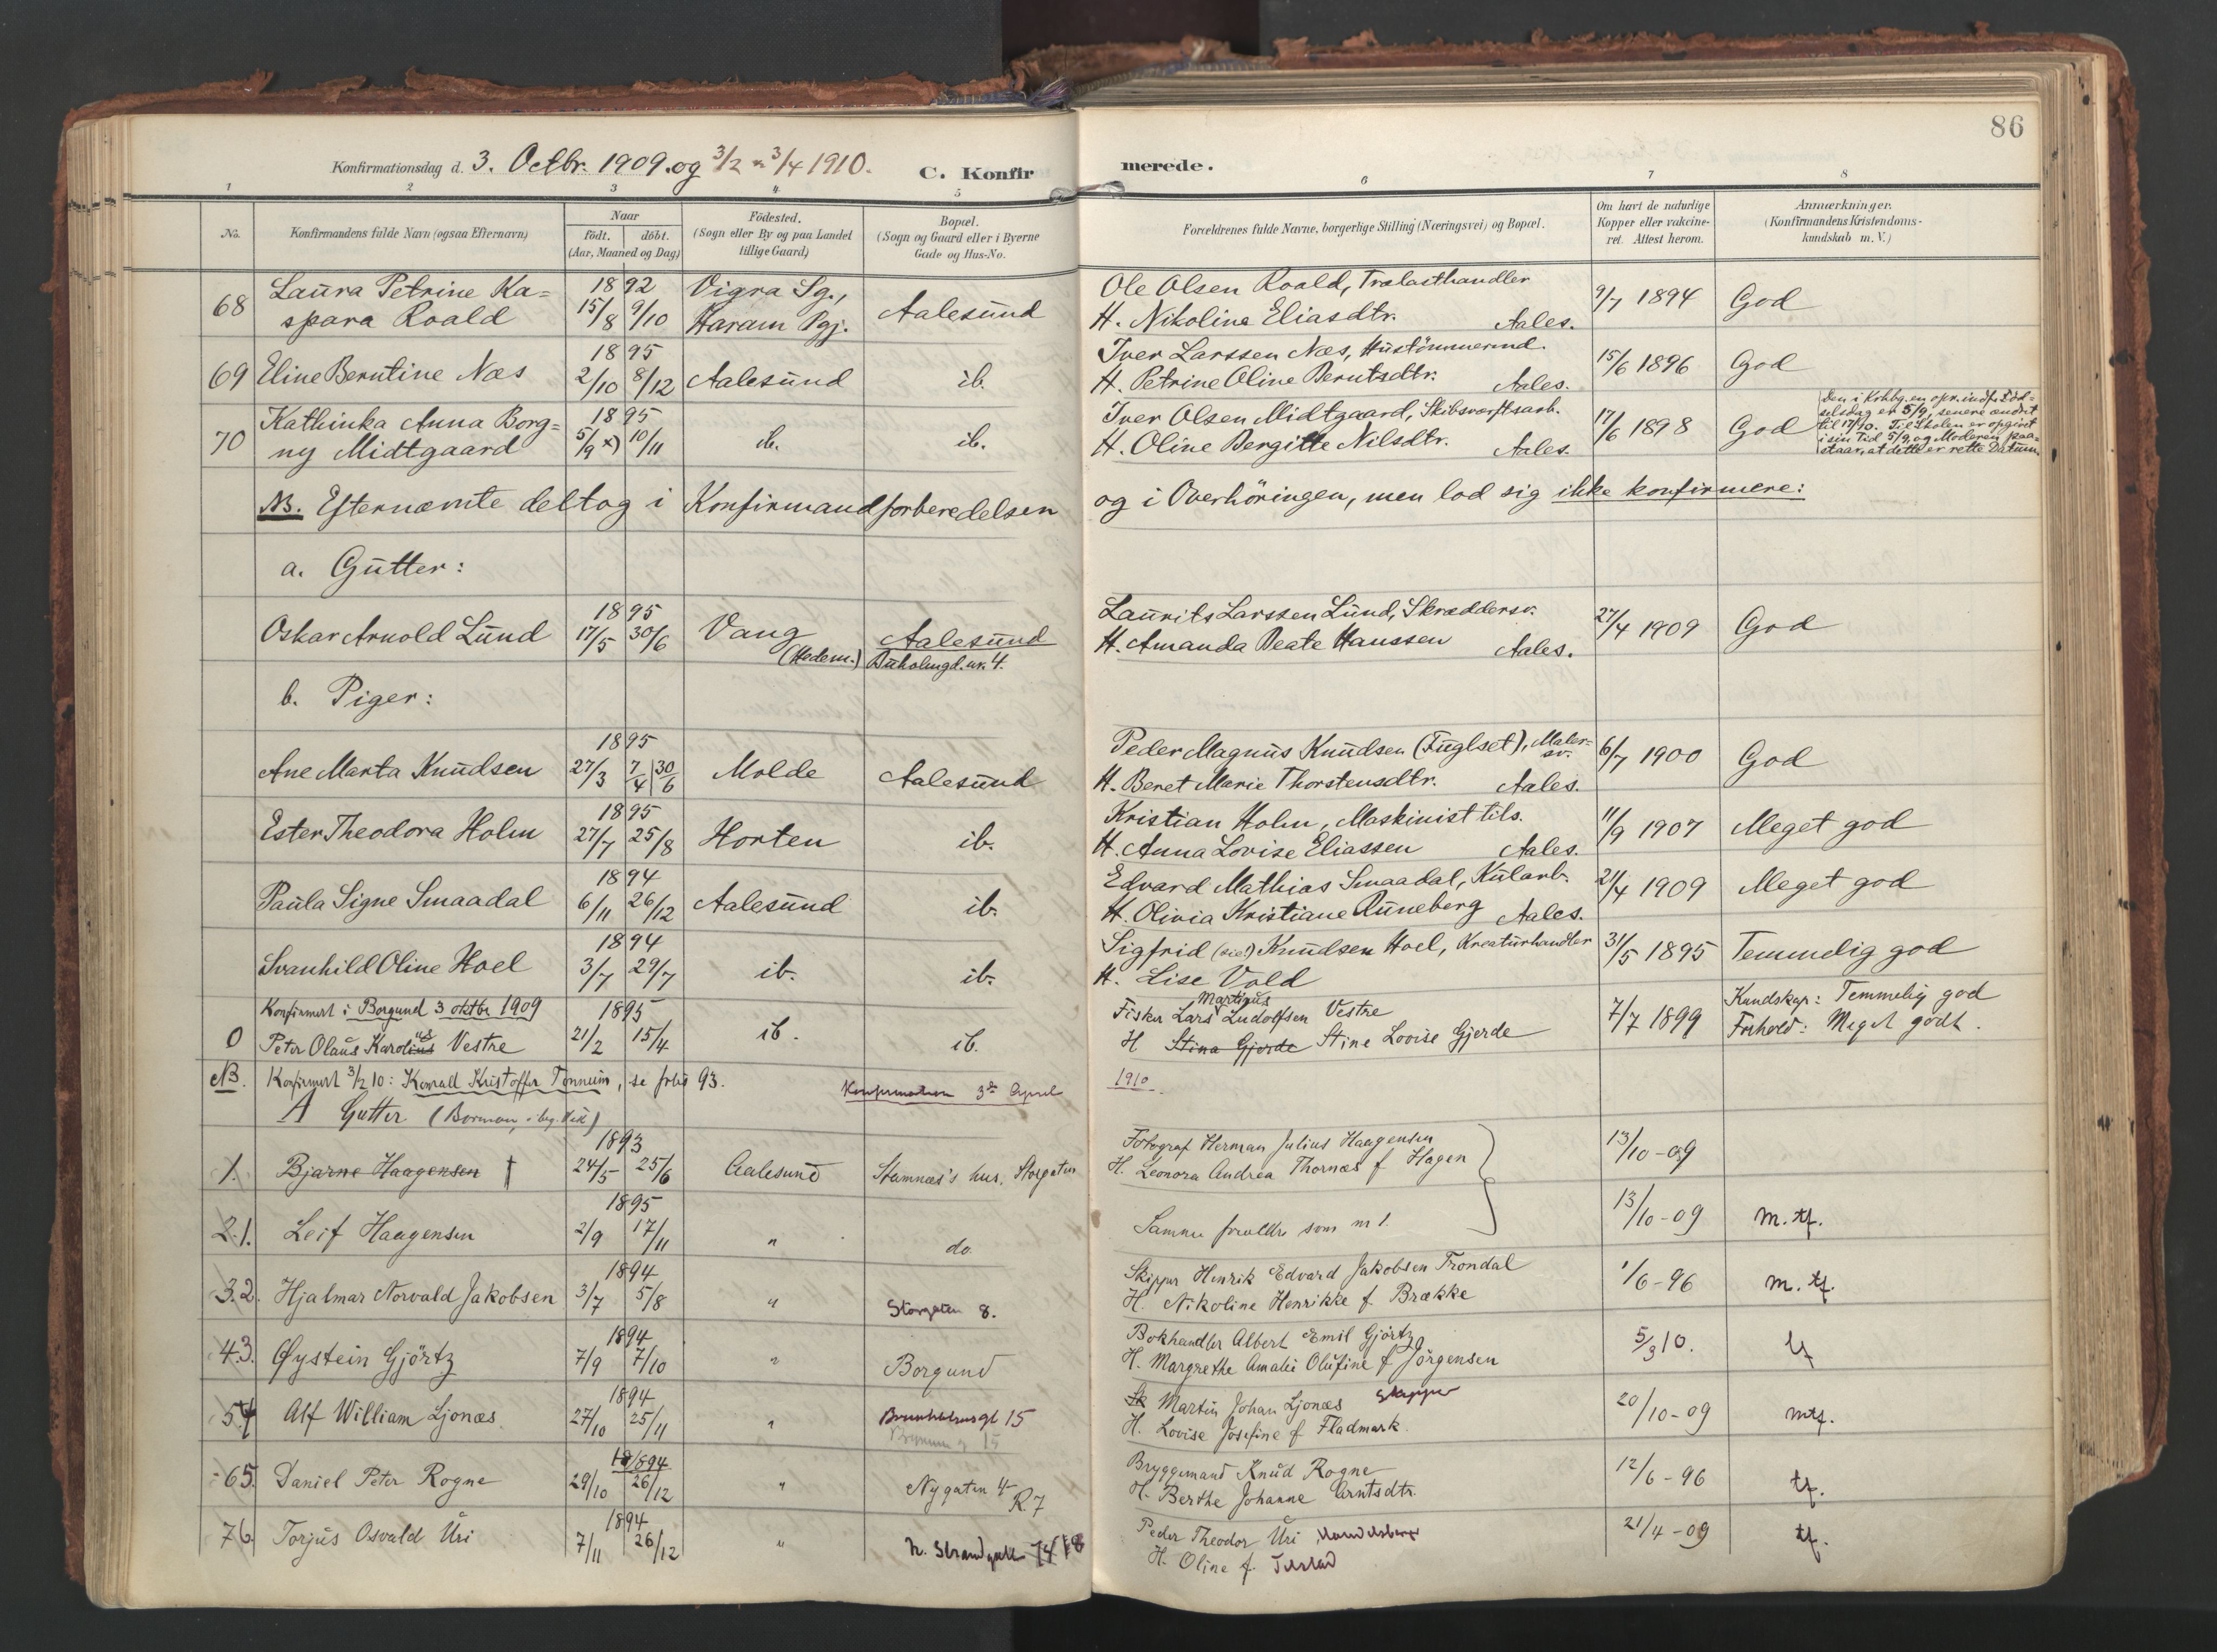 86
Konfirmationsdag d. 3. Octbr. 1909. og 3/2 3/4 1910. C. Konfirmerede.
1 2 3 4 5 6 7 8
No. Konfirmandens fulde Navn (ogsaa Efternavn) Naar födt. döbt. (Aar, Maaned og Dag) Födested. (Sogn eller By og paa Landet tillige Gaard) Bopæl. (Sogn og Gaard eller i Byerne Gade og Hus-No. Forældrenes fulde Navne, borgerlige Stilling (Næringsvei) og Bopæl. Om havt de naturlige Kopper eller vakcineret. Attest herom. Anmærkninger. (Konfirmandens Kristendomskundskab m. V.)
68 Laura Petrine Ka= 1892 Vigra Sg., Aalesund Ole Olsen Roald, Trælasthandler 9/7 1894 God
spara Roald 15/8 9/10 Haram Pgj. H. Nikoline Eliasdtr. Aales.
69 Eline Berntine Næs 1895 2/10 8/12 Aalesund ib. Iver Larssen Næs, Hustömmermd. 15/6 1896 God
H. Petrine Oline Berntsdtr. Aales.
70 Kathinka Anna Borg= 1895 ib. ib. Iver Olsen Midtgaard, Skibsværftsarb. 17/6 1898 God
ny Midtgaard 5/9 x) 10/11 H. Oline Bergitte Nilsdtr. Aales.
Den i Krkbg. en opr. indf. Föd=
selsdag er 5/9, senere ændret
til 17/10. Til Skolen er opgivet
i sin Tid 5/9, og Moderen paa=
staar, at dette er rette Datum.
NB. Efternævnte deltog i Konfirmandforberedelsen og i Overhöringen, men lod sig ikke konfirmere:
a. Gutter:
Oskar Arnold Lund 1895 17/5 30/6 Vang (Hedem.) Aalesund Buholmgd. nr. 4. Laurits Larssen Lund, Skræddersv. 27/4 1909 God
H. Amanda Beate Hanssen Aales.
b. Piger:
Ane Marta Knudsen 1895 27/3 7/4 30/6 Molde Aalesund Peder Magnus Knudsen (Fuglset), Maler=sv. 6/7 1900 God
H. Beret Marie Thorstensdtr. Aales.
Ester Theodora Holm 1895 27/7 25/8 Horten ib. Kristian Holm, Maskinist tils. 11/9 1907 Meget god
H. Anna Lovise Eliassen Aales.
Paula Signe Smaadal 1894 6/11 26/12 Aalesund ib. Edvard Mathias Smaadal, Kularb. 21/4 1909 Meget god
H. Olivia Kristiane Runeberg Aales.
Svanhild Oline Hoel 1894 3/7 29/7 ib. ib. Sigfrid (sic!) Knudsen Hoel, Kreaturhandler 31/5 1895 Temmelig god
H. Lise Vold
Konfirmert i Borgund 3 oktbr 1909
0 Peter Olaus Karolius Vestre 1895 21/2 15/4 ib. ib. Fisker Lars Martinus Ludolfsen Vestre 7/7 1899 Kundskap: Temmelig god
H Stina Gjerde Stine Lovise Gjerde Forhold: Meget godt.
NB. Konfirmert 3/2 10: Konrall Kristoffer Tonneim, se folio 93. Konfirmation 3de April 1910.
A Gutter
1. Bjarne Haagensen † 1893 24/5 25/6 Aalesund Stamnæs's hus, Storgaten Fotograf Herman Julius Haagensen 13/10-09
H. Leonora Andrea Thornæs f Hagen
2.1. Leif Haagensen 1895 2/9 17/11 " do. Samme foreldre som nr 1. 13/10-09 M. tf.
3.2. Hjalmar Norvald Jakobsen 1894 3/7 5/8 " Storgaten 8. Skipper Henrik Edvard Jakobsen Trondal 1/6-96 m. tf.
H. Nikoline Henrikke f. Brække
4.3. Øystein Gjörtz 1894 7/9 7/10 " Borgund Bokhandler Albert Emil Gjörtz 5/3 10. tf
H. Margrethe Amalie Olufine f Jörgensen
5.4 Alf William Ljonæs 1894 27/10 25/11 " Martin Johan Ljonæs Skipper 20/10-09 mtf.
H. Lovise Josefine f Fladmark.
65. Daniel Peter Rogne 1894 29/10 26/12 " Nygaten 4 R. 7 Bryggemand Knud Rogne 12/6-96 tf.
H. Berthe Johanne Arntsdtr.
76. Torjus Osvald Uri 1894 7/11 26/12 " N. Strandgate Peder Theodor Uri 21/4-09 tf.
H. Oline f.